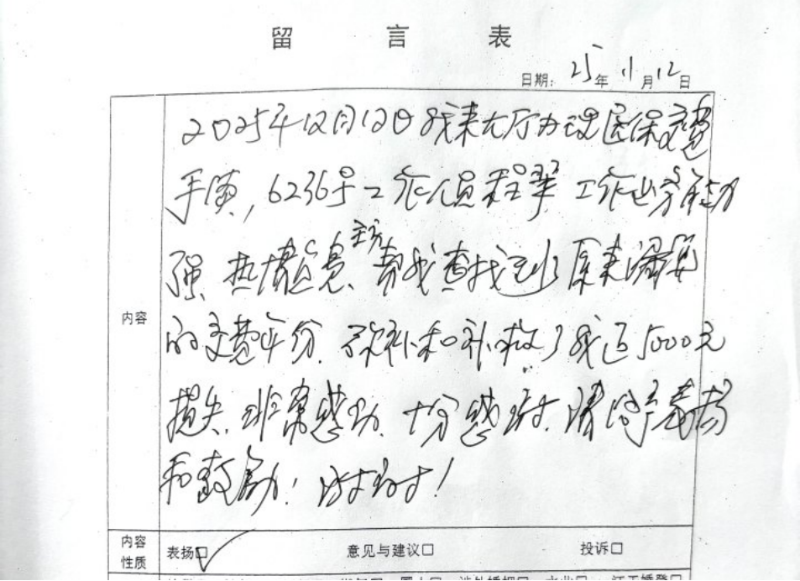 留言表
日期：25年11月12日
2025年12月12日我来大厅办理医保交费
手续，6236号工作人员程翠 工作业务能力
强、热情 主动帮我查找到了原来漏缴
的交费年份、弥补和补救了我近5000元
损失、非常感动、十分感谢、请给予表扬
和鼓励！谢谢！
内容
内容性质
表扬☑ 意见与建议□ 投诉□